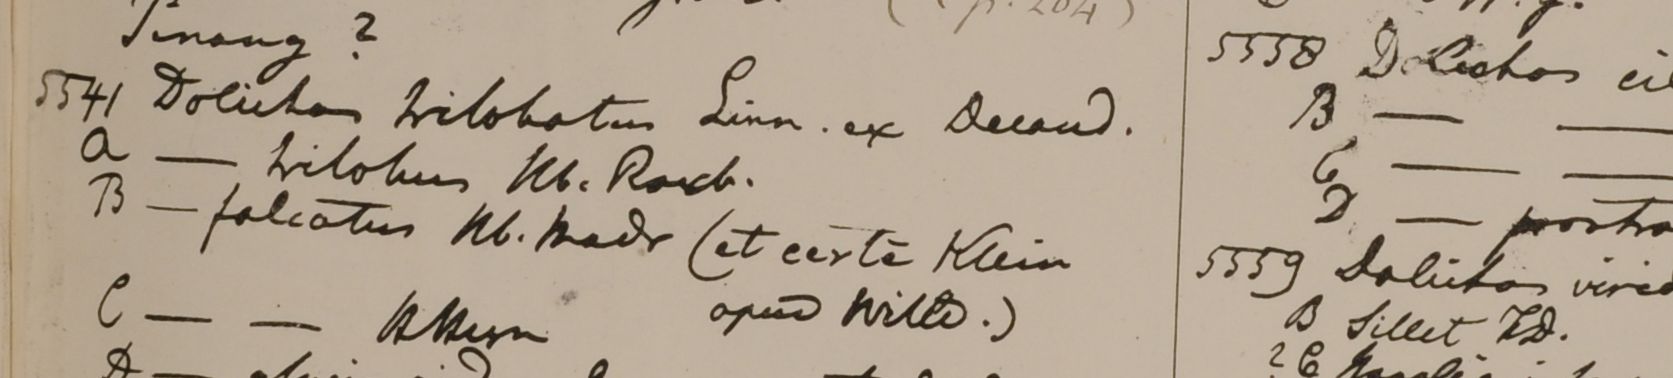 (p. 204)
Pinang ?
5541 Dolichos trilobatus Linn. ex Decand.
A — trilobus Hb. Roxb.
B — falcatus Hb. Madr (et certe Klein
apud Willd.)
C — — HHeyn
5558 Dolichos
B — —
C — —
D — prostra
5559 Dolichos
B Sillet FD.